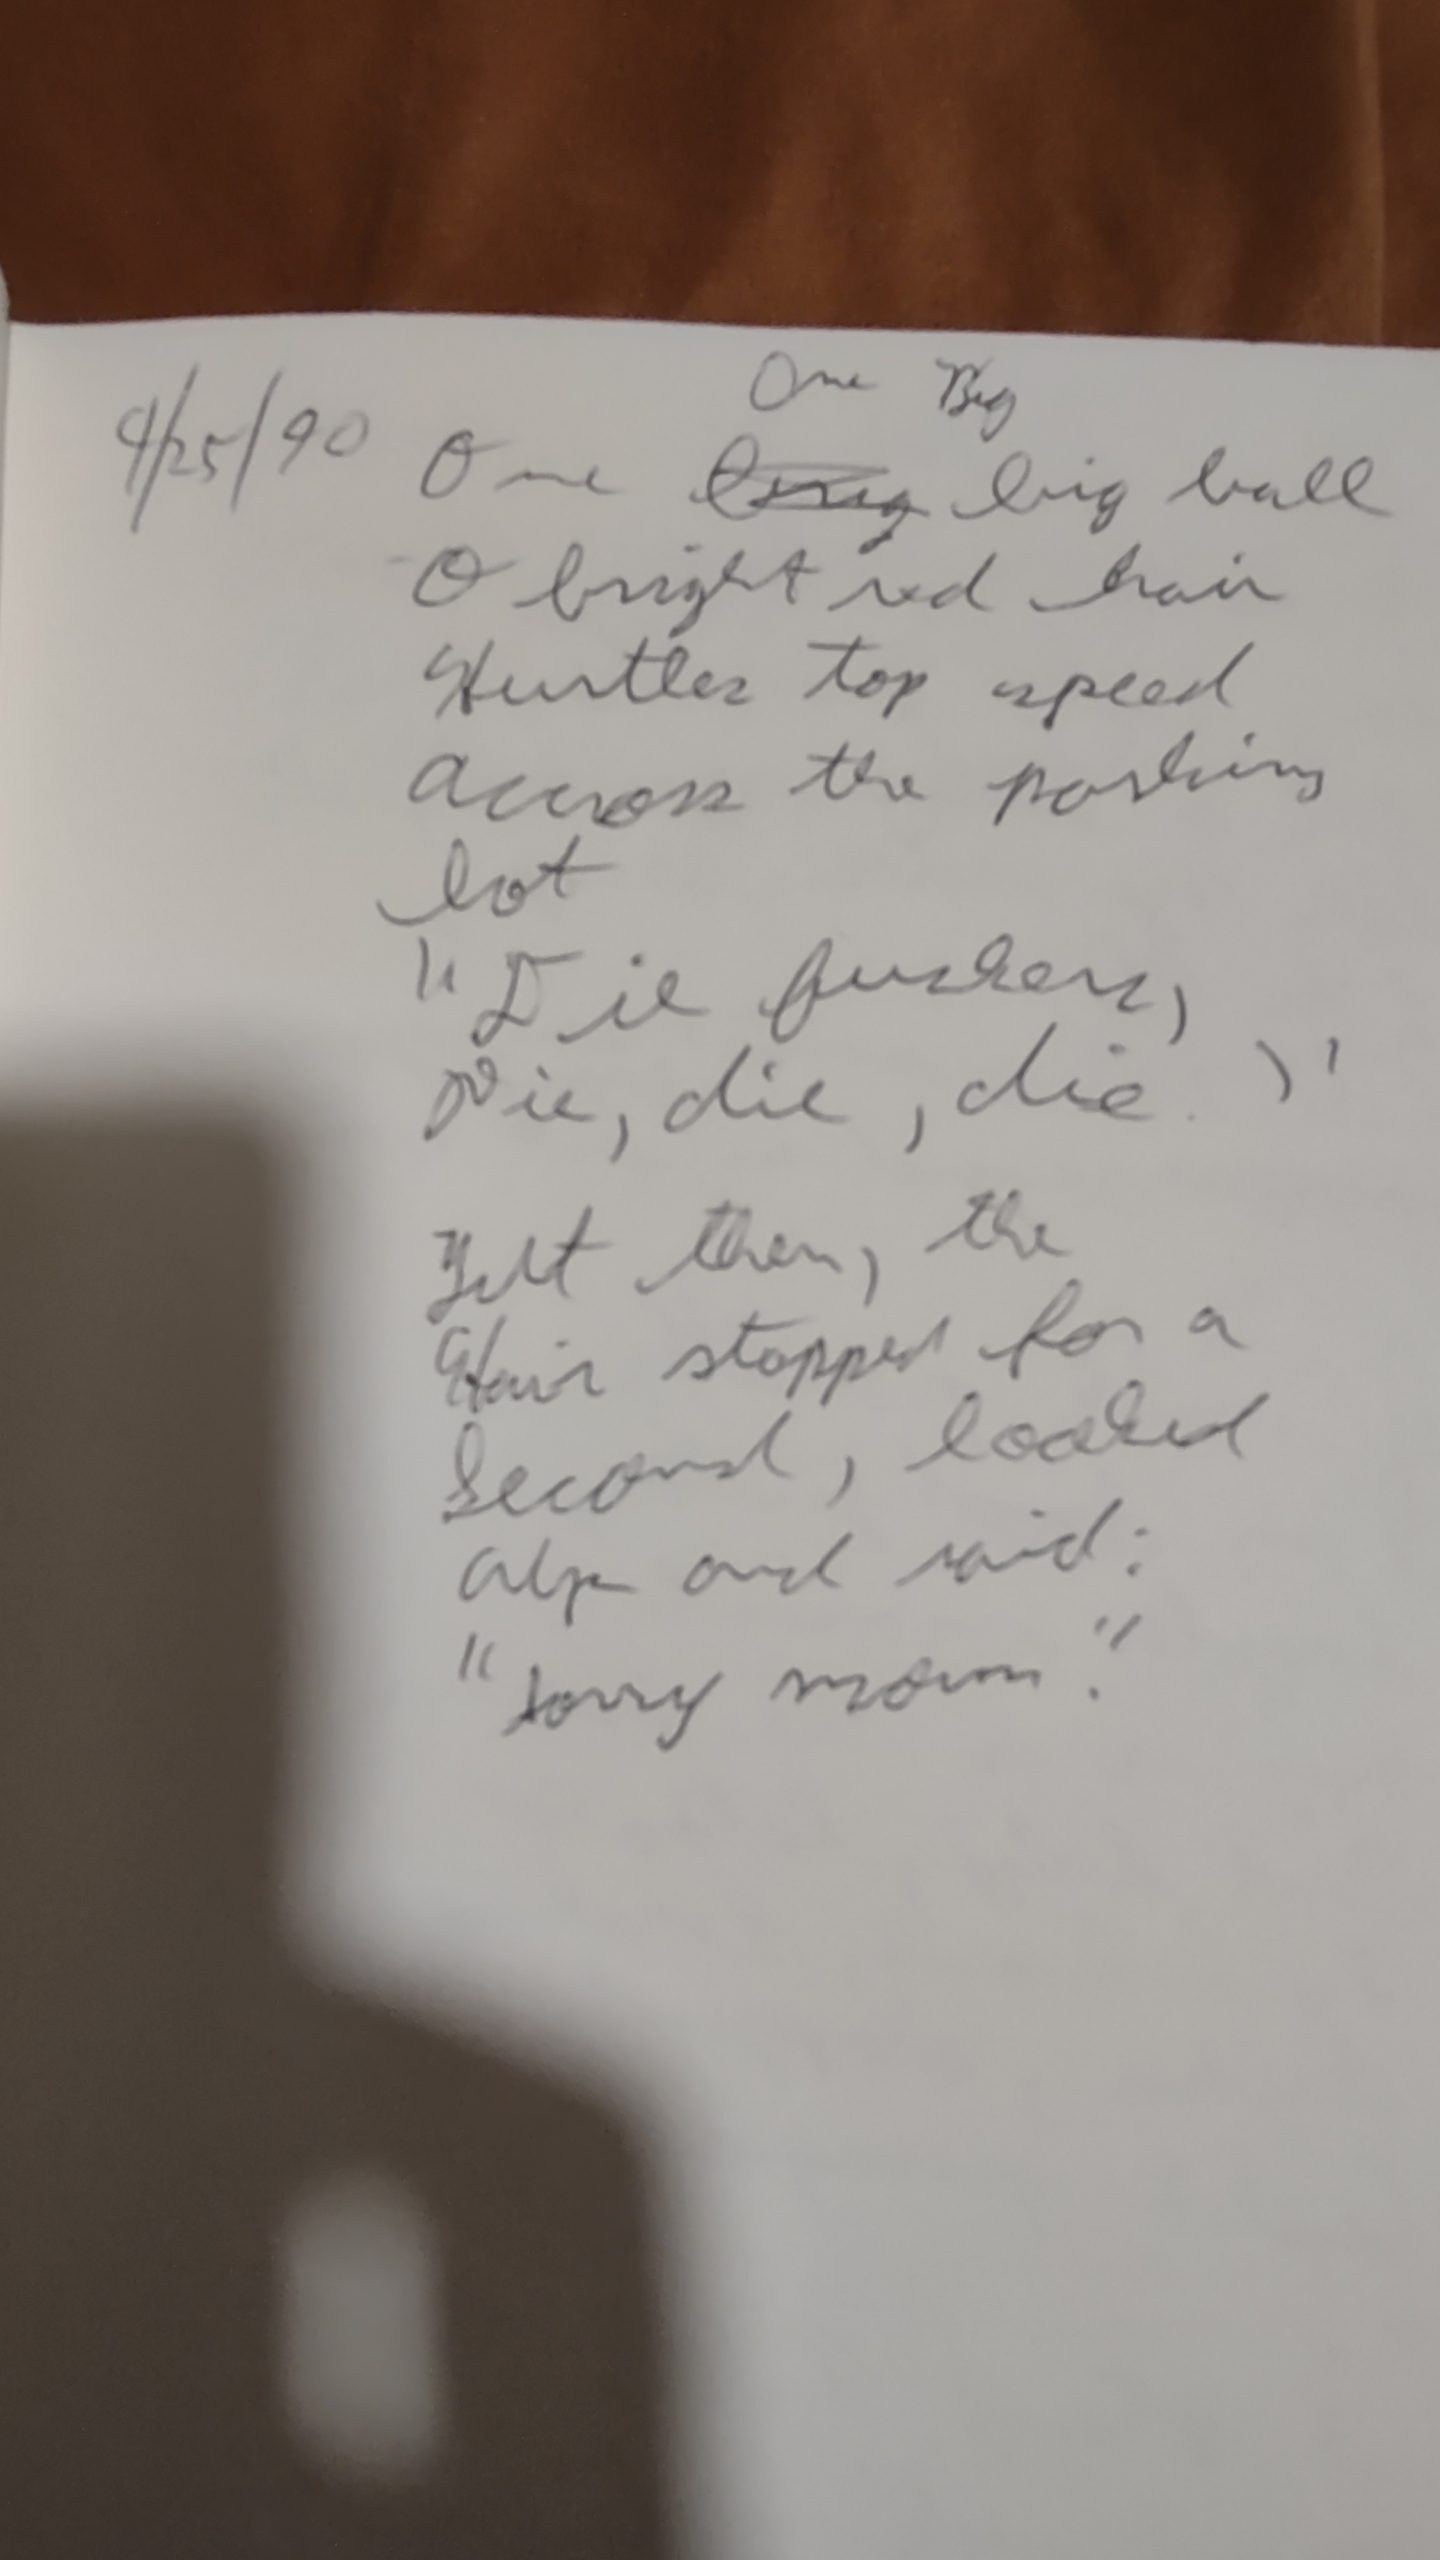 One Big
9/25/90 One big ball
O bright red hair
Hurtles top speed
accross the parking
lot
"Die fuckers,
Die, die, die."
Just then, the
Hair stopped for a
second, looked
up and said:
"Sorry mom."